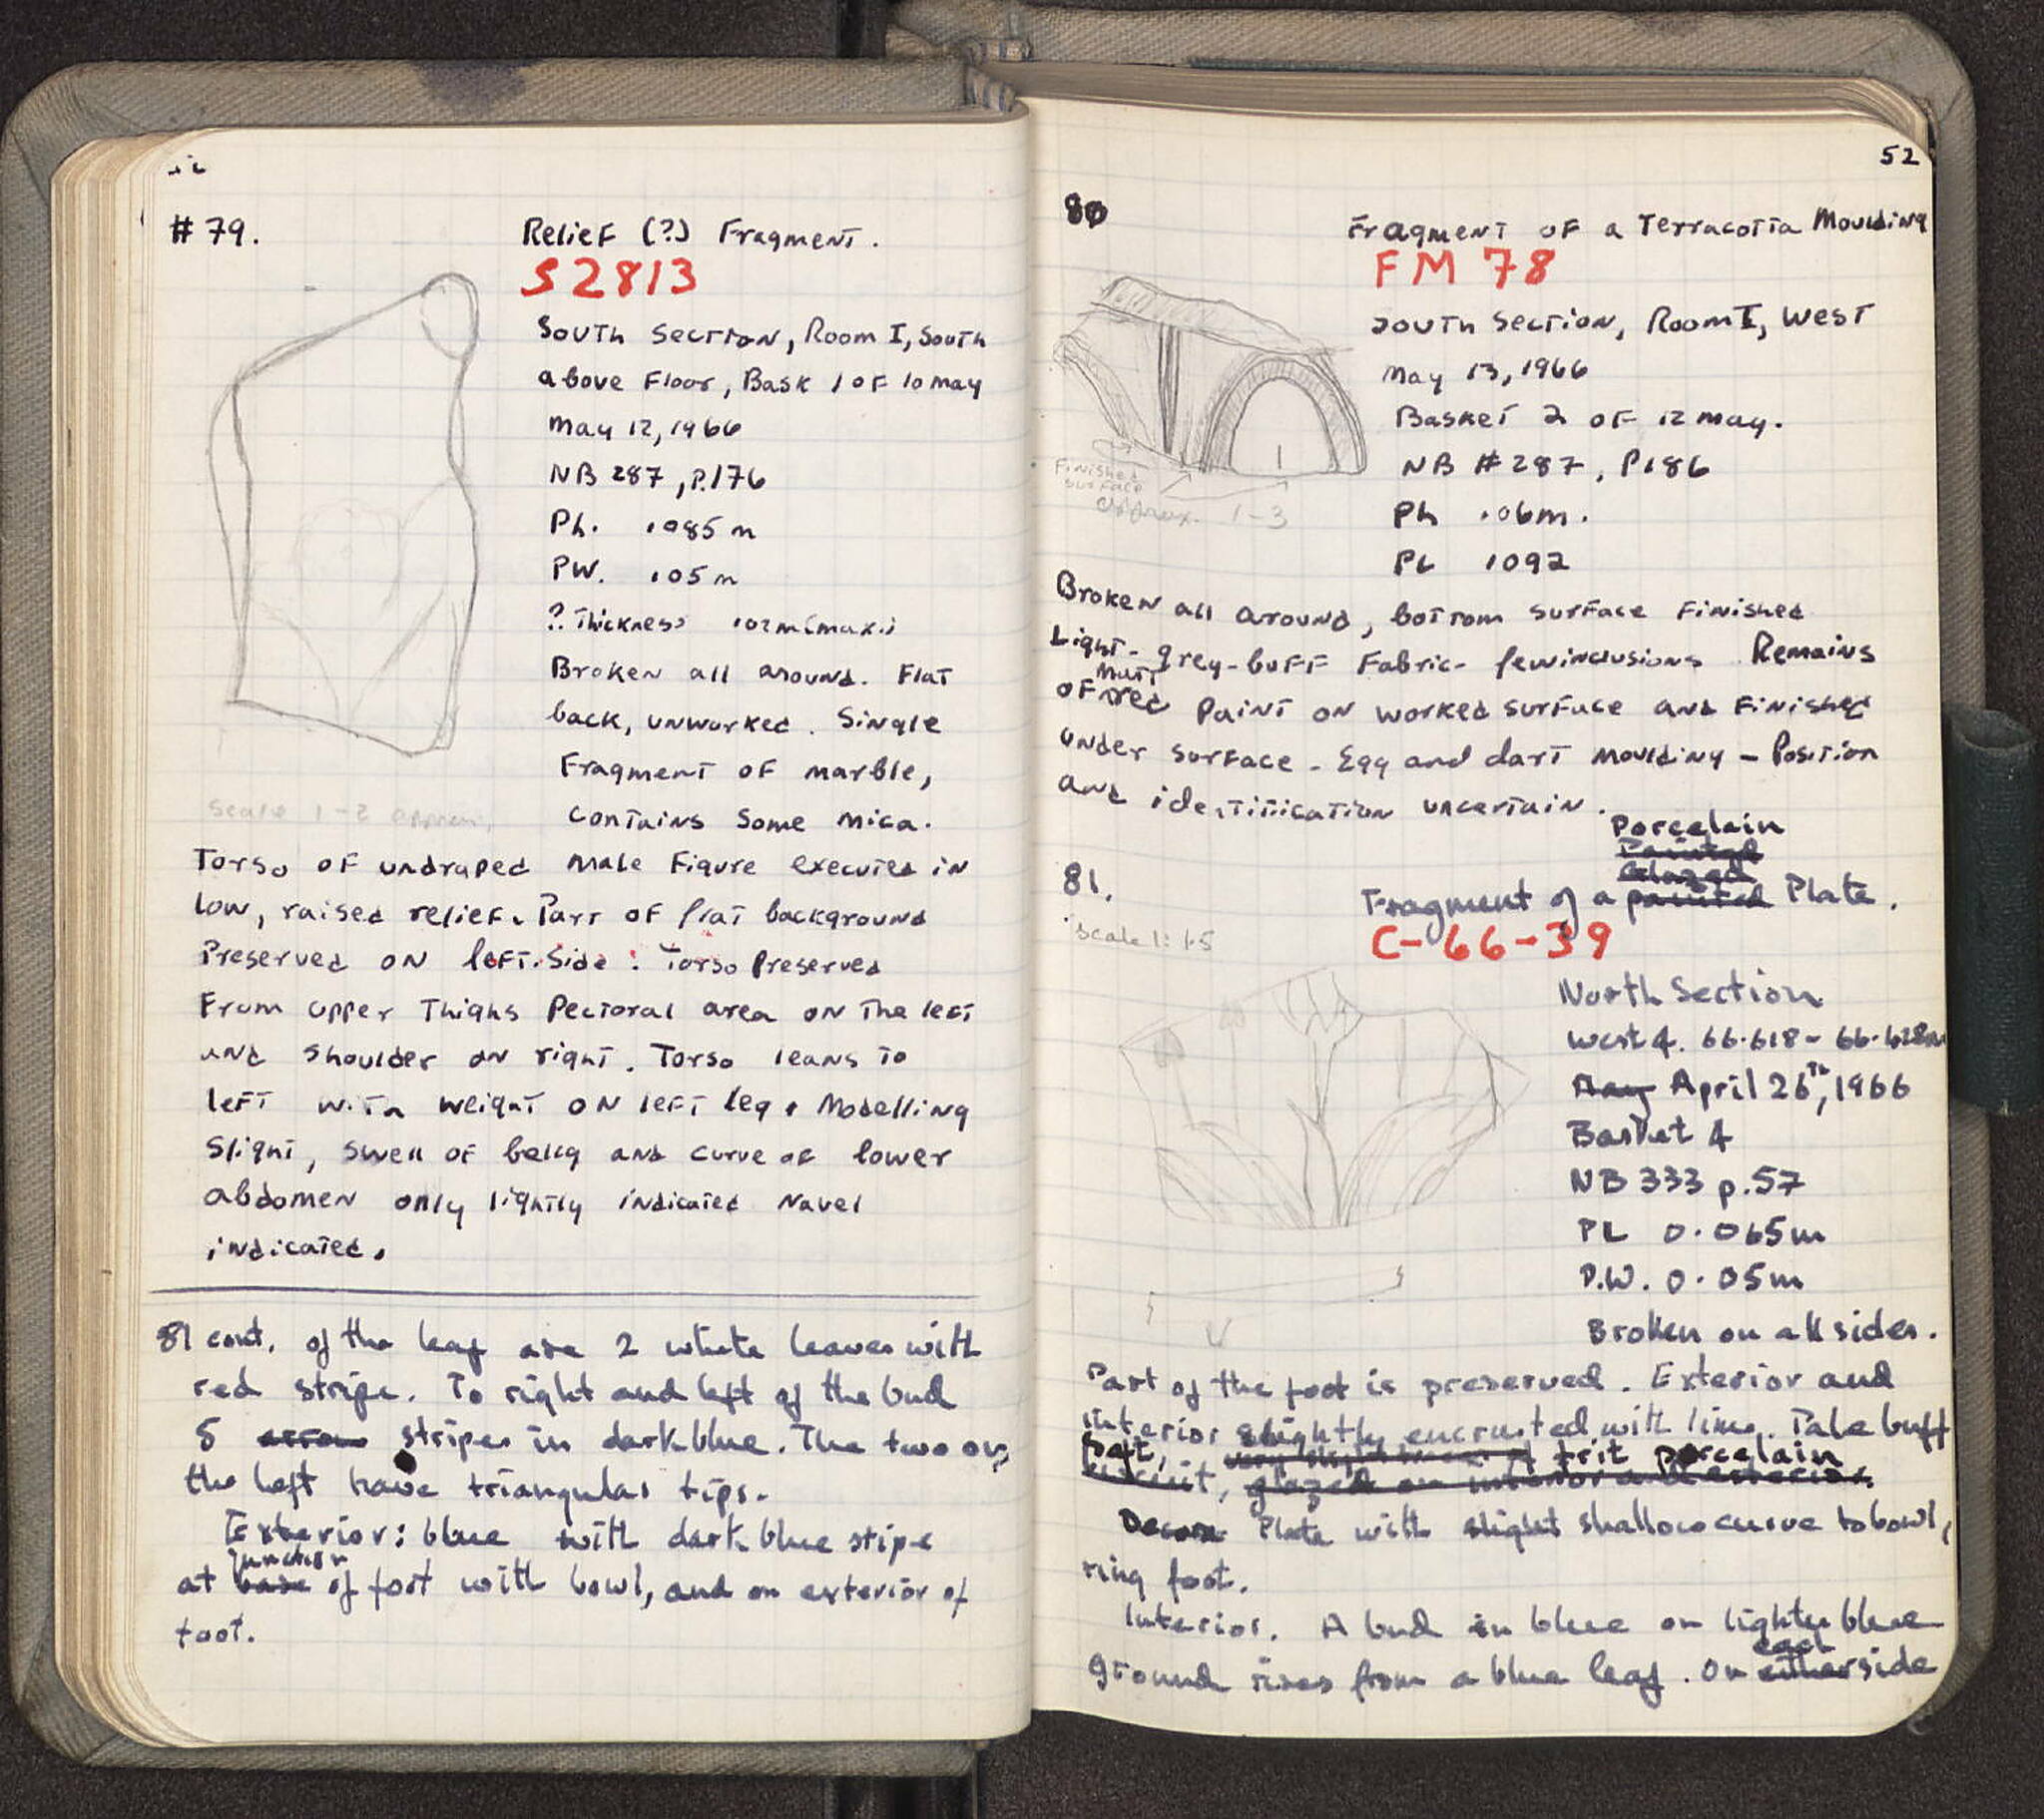 # 79.
Relief (?) Fragment.
S 2813
South Section, Room I, South
above Floor, Bask 1 of 10 may
May 12, 1966
NB 287, P.176
Ph. .085 m
PW. .05 m
? Thickness .02m (max.)
Broken all around. Flat
back, unworked. Single
Fragment of marble,
contains some mica.
scale 1-2 approx.
Torso of undraped male Figure executed in
low, raised relief. Part of flat background
Preserved on left side: Torso Preserved
From upper Thighs Pectoral area on the left
and shoulder on right. Torso leans to
left with weight on left leg. Modelling
Slight, swell of belly and curve of lower
abdomen only lightly indicated Navel
indicated.
81 cont. of the leaf are 2 white leaves with
red stripe. To right and left of the bud
5 stripes in dark blue. The two on
the left have triangular tips.
Exterior: blue with dark blue stripe
junction
at base of foot with bowl, and on exterior of
foot.
52
80
Fragment of a Terracotta Moulding
FM 78
South Section, Room I, West
May 13, 1966
Basket 2 of 12 may.
NB # 287, P186
Ph .06m.
PL .092
Finished
surface
approx. 1-3
Broken all around, bottom surface Finished
Light-grey-buff Fabric- few inclusions Remains
matt
of red Paint on worked surface and Finished
under surface - Egg and dart moulding - Position
and identification uncertain.
Porcelain
Painted
Glazed
81.
Fragment of a painted Plate.
scale 1:1.5
C-66-39
North Section
West 4. 66.618 - 66.428m
May April 26th, 1966
Basket 4
NB 333 p.57
PL 0.065m
P.W. 0.05m
Broken on all sides.
Part of the foot is preserved. Exterior and
interior slightly encrusted with lime. Pale buff
frit porcelain
biscuit, glazed on interior and exterior.
Plate with slight shallow curve to bowl,
ring foot.
Interior. A bud in blue on lighter blue
each
ground rises from a blue leaf. On either side